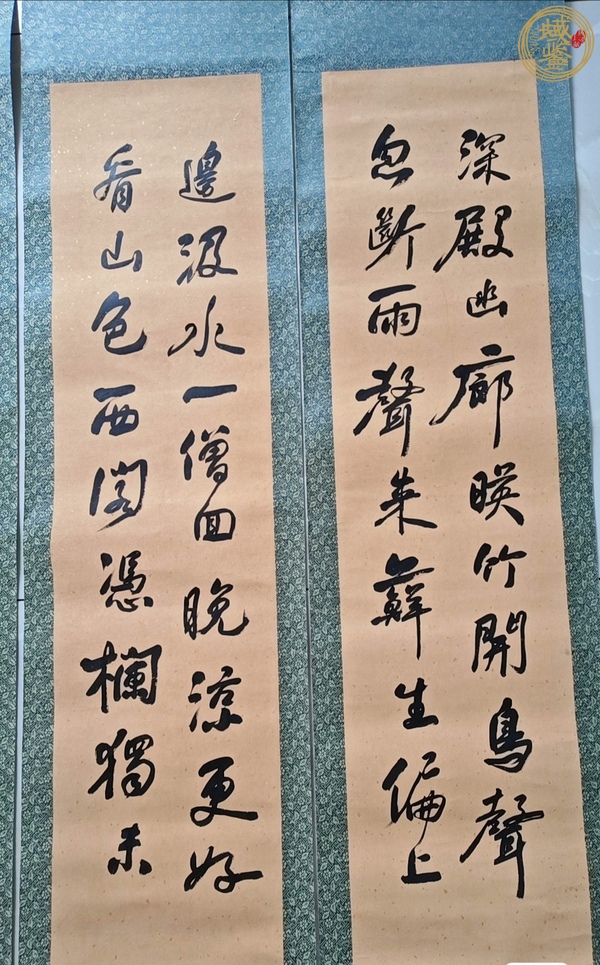 深殿幽廊暎竹開鳥聲
忽斷雨聲来蘚生偏上
邊汲水一僧回晚涼更好
看山色西閣憑欄獨未
域鉴